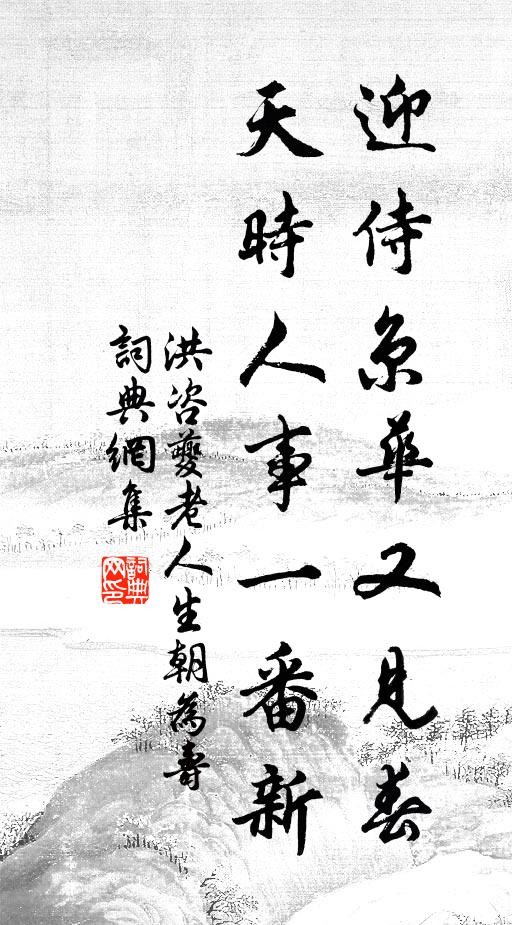 迎侍京華又見春
天時人事一番新
洪咨夔老人生朝為壽
詞典網集
詞典網印